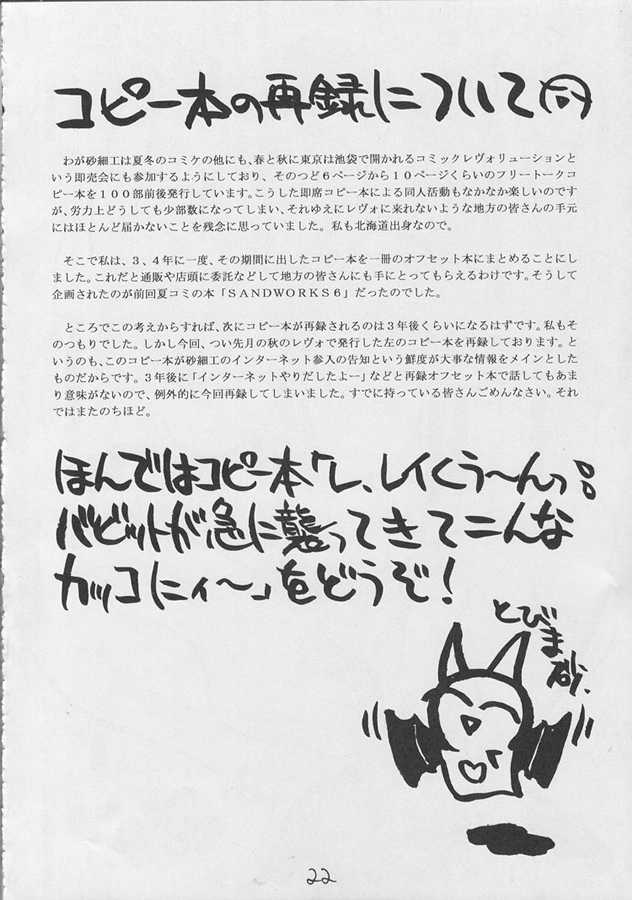 コピー本の再録について
わが砂細工は夏冬のコミケの他にも、春と秋に東京は池袋で開かれるコミックレヴォリューションと
いう即売会にも参加するようにしており、そのつど6ページから10ページくらいのフリートーク
コピー本を100部前後発行しています。こうした即席コピー本による同人活動もなかなか楽しいのです
が、労力上どうしても少部数になってしまい、それゆえにレヴォに来れないような地方の皆さんの手元
にはほとんど届かないことを残念に思っていました。私も北海道出身なので。
そこで私は、3、4年に一度、その期間に出したコピー本を一冊のオフセット本にまとめることにし
ました。これだと通販や店頭に委託などして地方の皆さんにも手にとってもらえるわけです。そうして
企画されたのが前回夏コミの本「SANDWORKS6」だったのでした。
ところでこの考えからすれば、次にコピー本が再録されるのは3年後くらいになるはずです。私もそ
のつもりでした。しかし今回、つい先月の秋のレヴォで発行した左のコピー本を再録しております。と
いうのも、このコピー本が砂細工のインターネット参入の告知という鮮度が大事な情報をメインとした
ものだからです。3年後に「インターネットやりだしたよー」などと再録オフセット本で話してもあま
り意味がないので、例外的に今回再録してしまいました。すでに持っている皆さんごめんなさい。それ
ではまたのちほど。
ほんではコピー本「レ、レイくぅ〜んっ
バビットが急に襲ってきてこんな
カッコにィ〜」をどうぞ!
とびま砂、
22